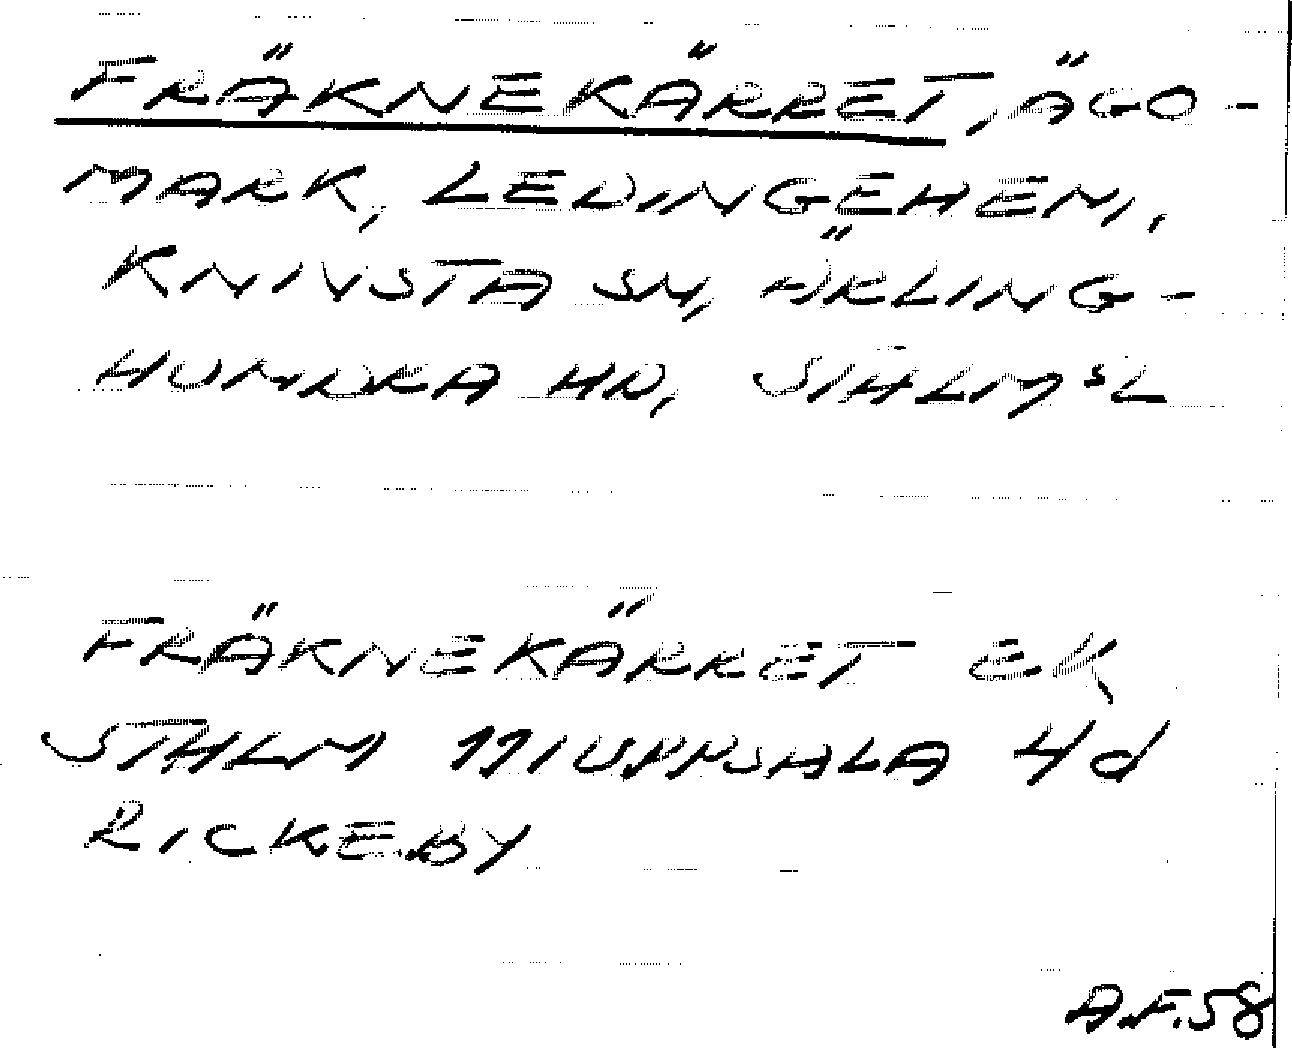 FRÄKNEKÄRRET, ÄGO-
MARK, LEDINGEHEM,
KNIVSTA SN, ÄRLING-
HUNDRA HD, STHLMSL
FRÄKNEKÄRRET EK
STHLM 11I UPPSALA 4d
RICKEBY
A.F.58